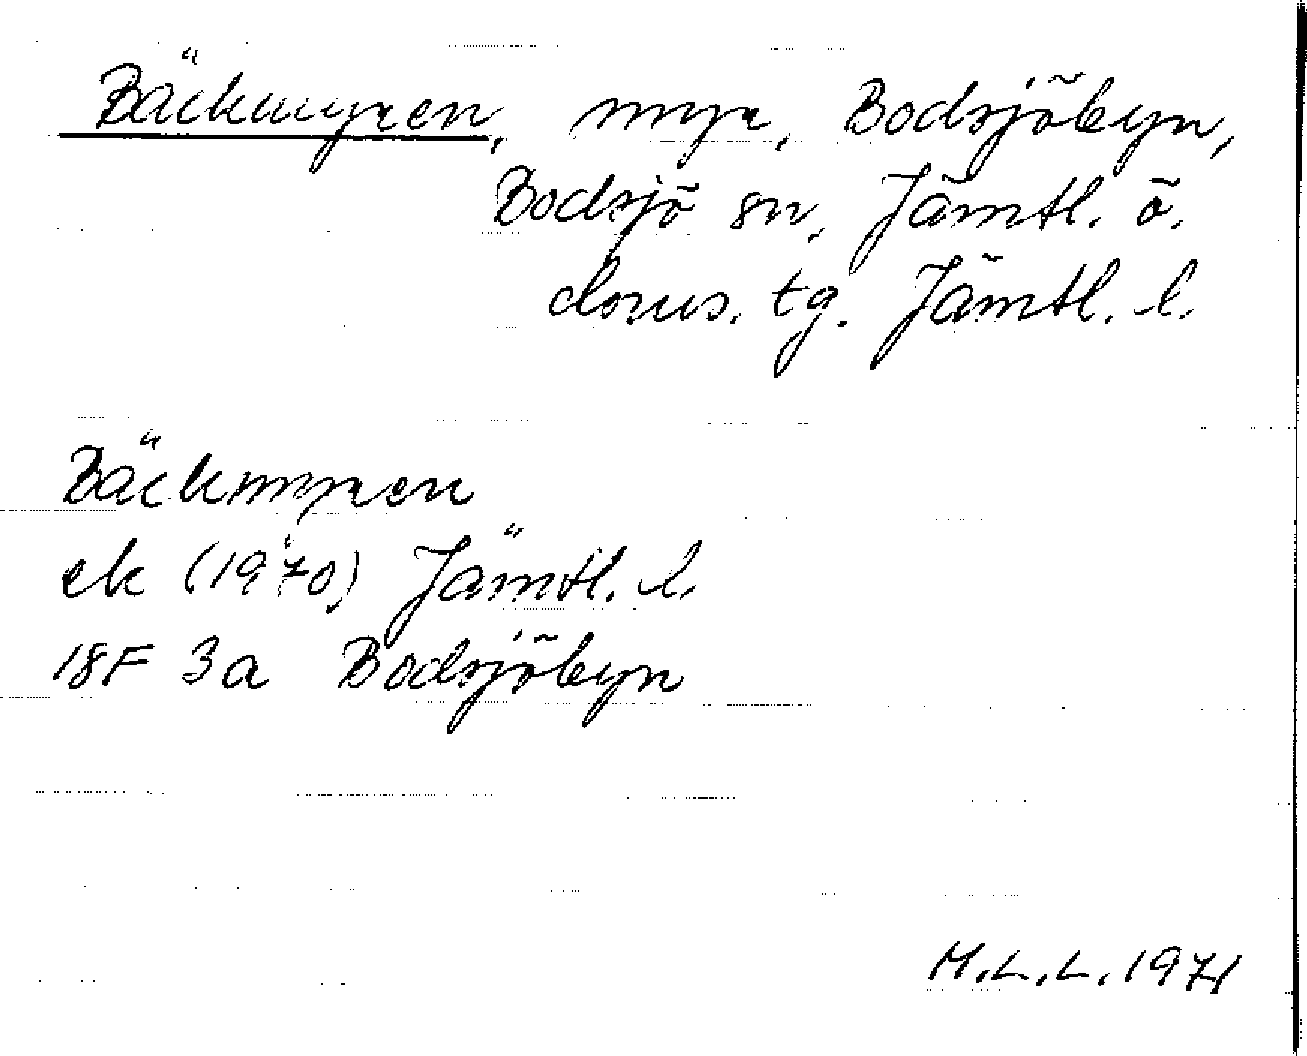 Bäckmyren, myr, Bodsjöbyn,
Bodsjö sn, Jämtl. ö.
doms. tg. Jämtl. l.
Bäckmyren
ek (1970) Jämtl. l.
18F 3a Bodsjöbyn
M.L.L. 1971